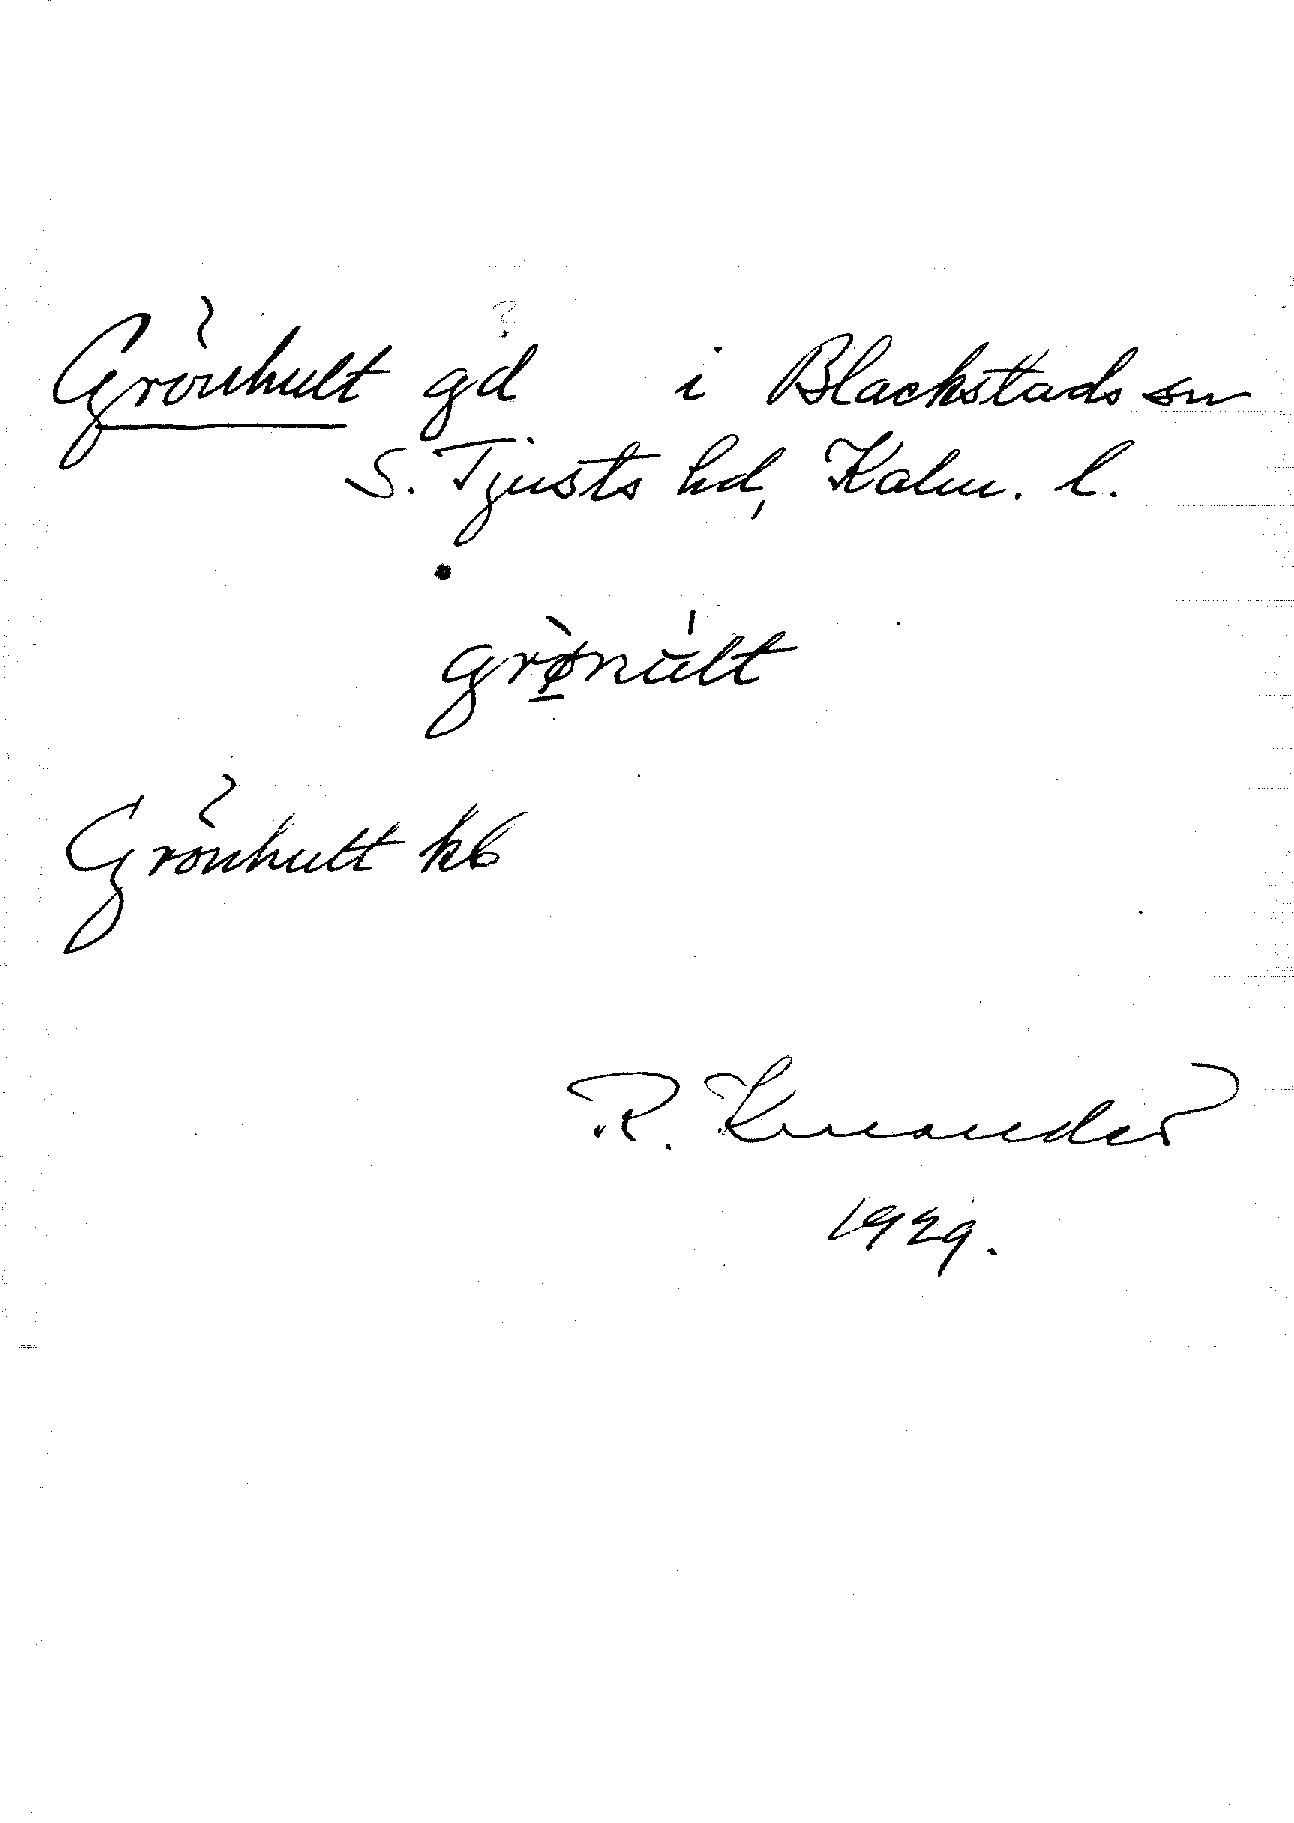 Grönhult gd ? i Blackstads sn
S. Tjusts hd, Kalm. l.
grø̀núlt
Grönhult kb
R.
1929.